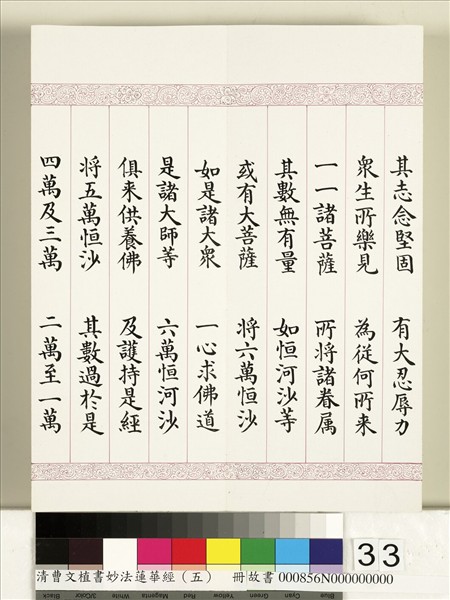 其志念堅固　有大忍辱力
衆生所樂見　為從何所来
一一諸菩薩　所將諸眷属
其數無有量　如恒河沙等
或有大菩薩　將六萬恒沙
如是諸大衆　一心求佛道
是諸大師等　六萬恒河沙
俱来供養佛　及護持是經
將五萬恒沙　其數過於是
四萬及三萬　二萬至一萬
33
清曹文植書妙法蓮華經（五）　冊故書 000856N000000000
Black 3/Color White Magenta Red Yellow Green Cyan Blue